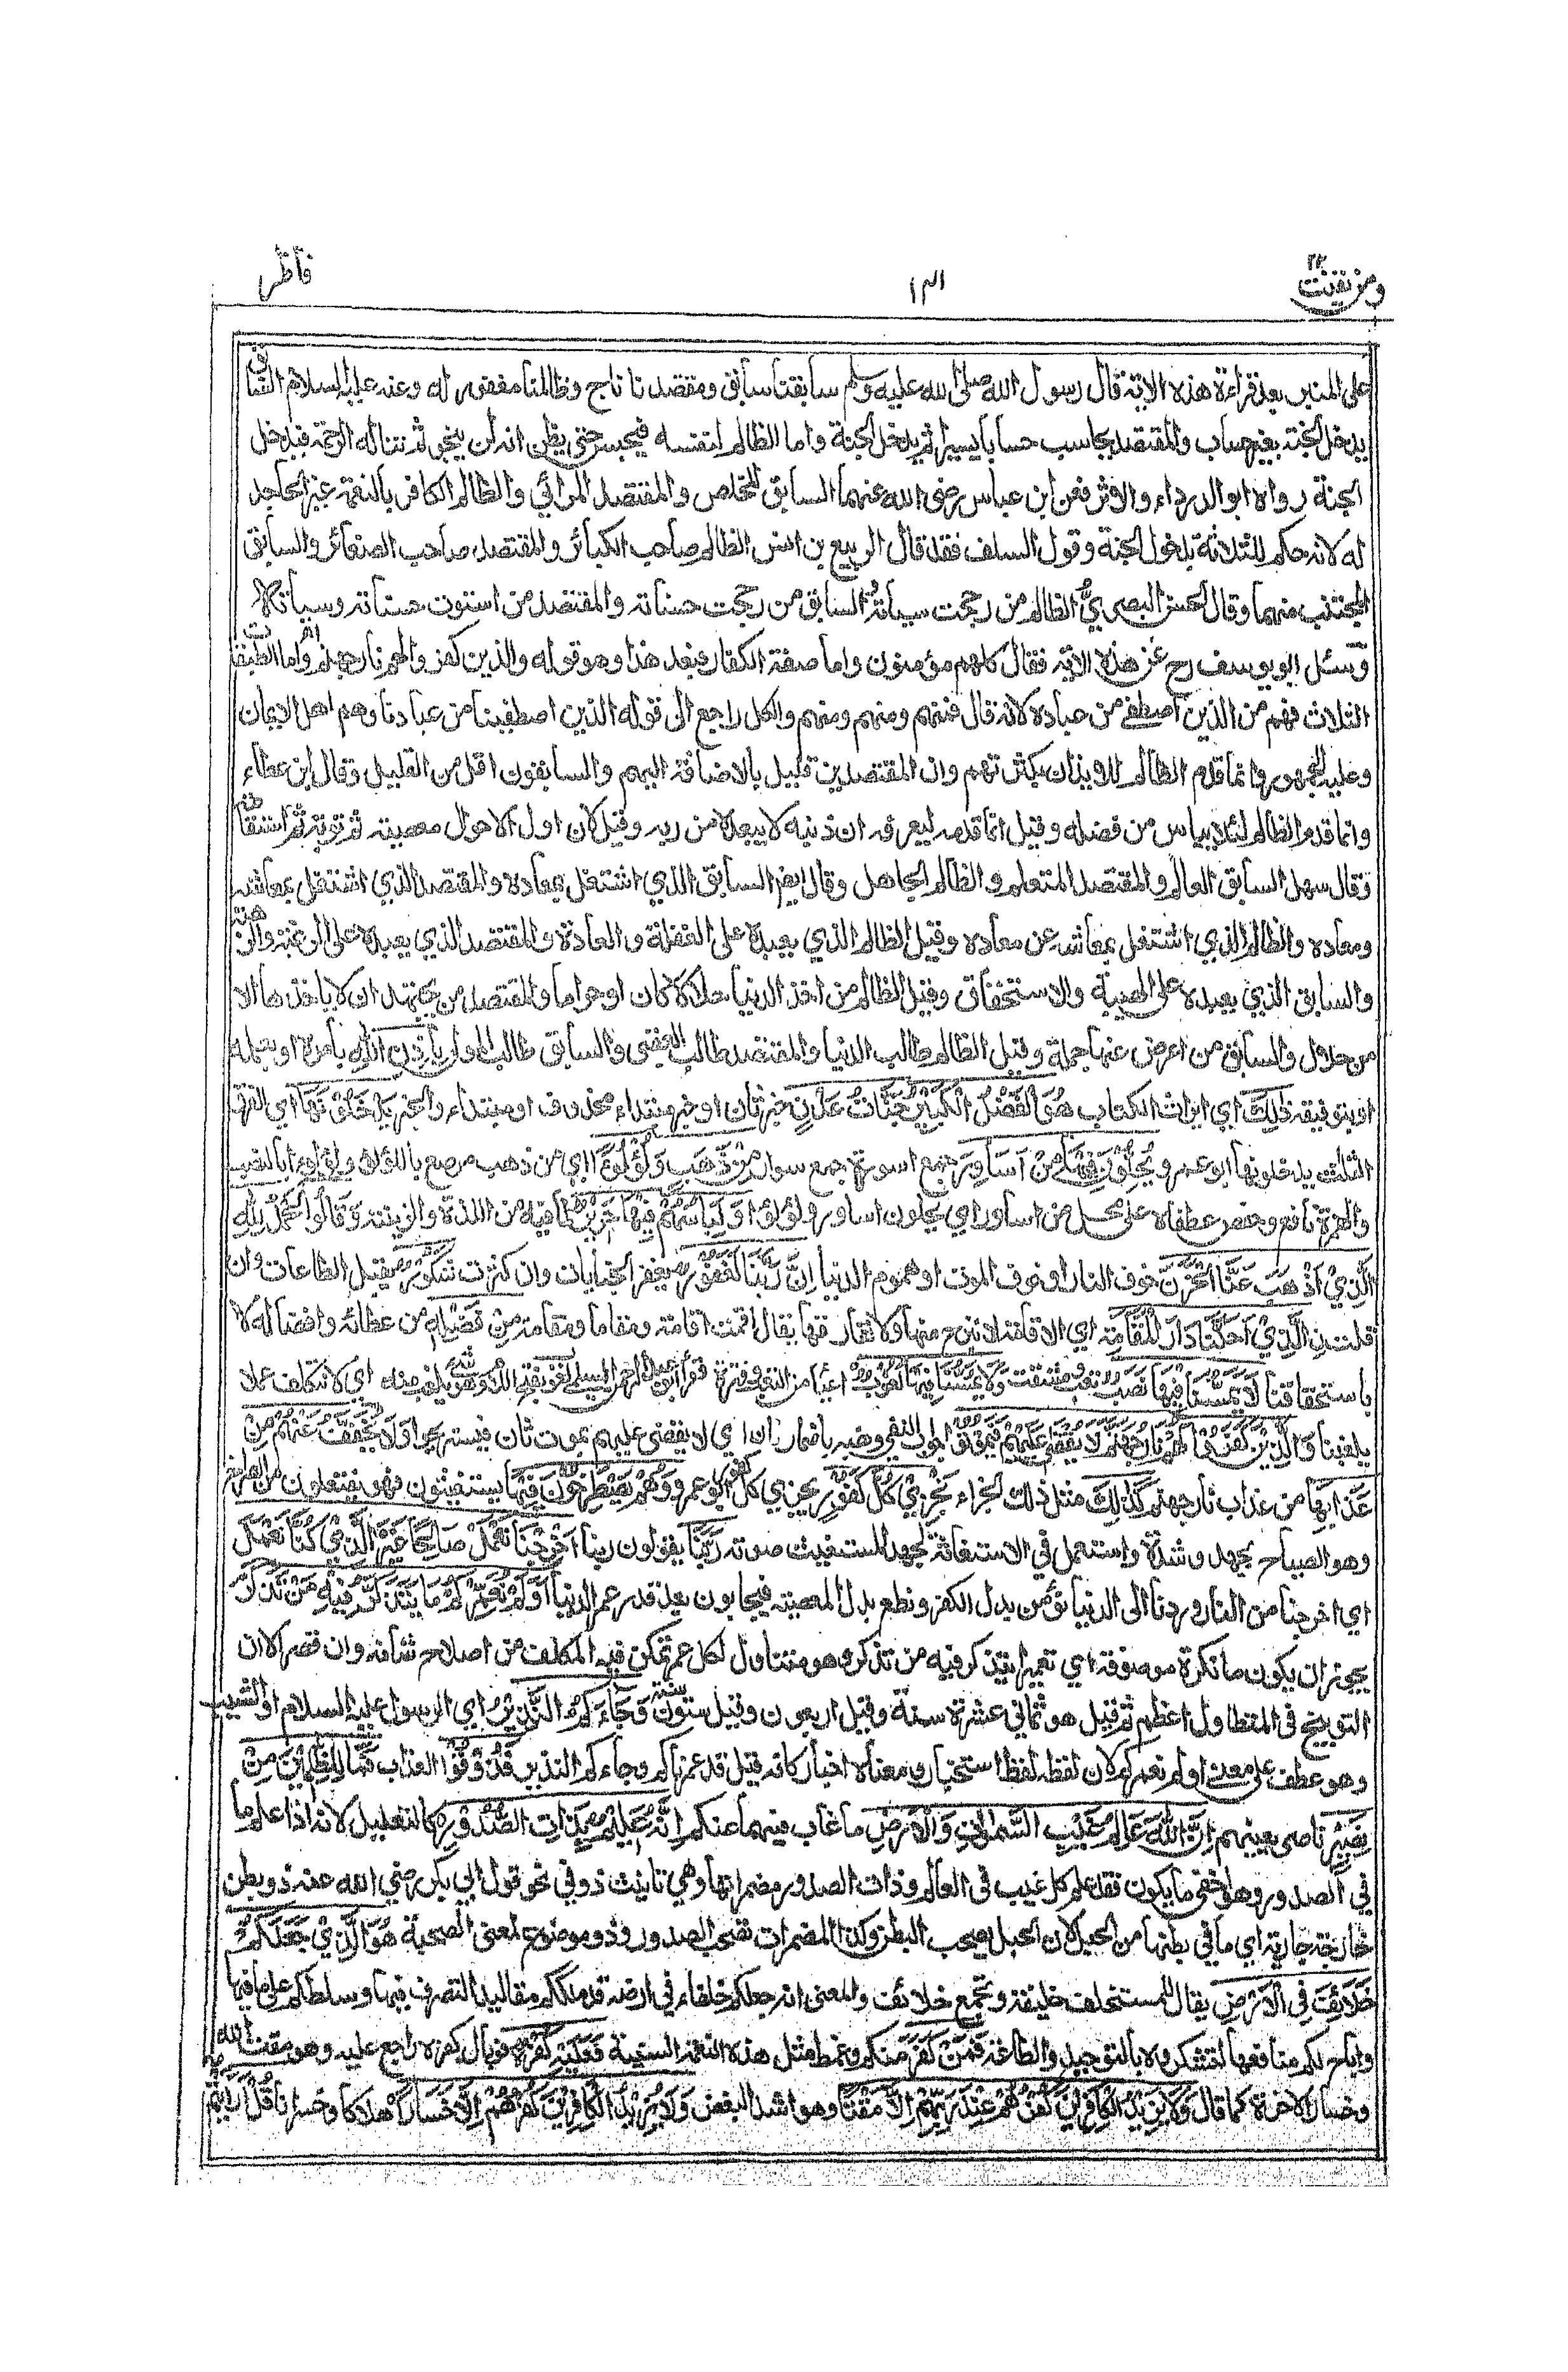 ومن يقنت ٢٢
١٣١
فاطر
على المنبر بعد قراءة هذه الاية قال رسول الله صلى الله عليه وسلم سابقنا سابق ومقتصدنا ناج وظالمنا مغفور له وعنه عليه السلام السابق
يدخل الجنة بغير حساب والمقتصد يحاسب حسابا يسيرا ثم يدخل الجنة واما الظالم لنفسه فيحبس حتى يظن انه لن ينجو ثم تناله الرحمة فيدخل
الجنة رواه ابو الدرداء والاثر فعن ابن عباس رضى الله عنهما السابق المخلص والمقتصد المرائي والظالم الكافر بالنعمة غير الجاحد
له لانه حكم للثلاثة بدخول الجنة وقول السلف فقد قال الربيع بن انس الظالم صاحب الكبائر والمقتصد صاحب الصغائر والسابق
المجتنب منهما وقال الحسن البصري الظالم من رجحت سيأته السابق من رجحت حسناته والمقتصد من استوت حسناته وسيأته
وسئل ابو يوسف رح عن هذه الاية فقال كلهم مؤمنون واما صفة الكفار فبعد هذا وهو قوله والذين كفروا لهم نار جهنم واما الطبقات
الثلاث فهم من الذين اصطفى من عباده لانه قال فمنهم ومنهم ومنهم والكل راجع الى قوله الذين اصطفينا من عبادنا وهم اهل الايمان
وعليه الجمهور وانما قدم الظالم للايذان بكثرتهم وان المقتصدين قليل بالاضافة اليهم والسابقون اقل من القليل وقال ابن عطاء
وانما قدم الظالم لئلا ييأس من فضله وقيل انما قدمه ليعرفه ان ذنبه لا يبعده من ربه وقيل لان اول الاحوال معصية ثم توبة ثم استقامة
وقال سهل السابق العالم والمقتصد المتعلم والظالم الجاهل وقال ايضا السابق الذي اشتغل بمعاده والمقتصد الذي اشتغل بمعاشه
ومعاده والظالم الذي اشتغل بمعاشه عن معاده وقيل الظالم الذي يعبده على الغفلة والعادة والمقتصد الذي يعبده على الرغبة والرهبة
والسابق الذي يعبده على الهيبة والاستحقاق وقيل الظالم من اخذ الدنيا حلالا كان او حراما والمقتصد من يجتهد ان لا ياخذها الا
من حلال والسابق من اعرض عنها جملة وقيل الظالم طالب الدنيا والمقتصد طالب العقبى والسابق طالب المولى بِاِذْنِ اللّٰهِ بأمره او بعلمه
او بتوفيقه ذٰلِكَ اي ايراث الكتاب هُوَ الْفَضْلُ الْكَبِيْرُ جَنّٰتُ عَدْنٍ خبر ثان او خبر مبتداء محذوف او مبتداء والخبر يَدْخُلُوْنَهَا اي الفرق
الثلث يدخلونها ابو عمرو يُحَلَّوْنَ فِيْهَا مِنْ اَسَاوِرَ جمع اسورة جمع سوار مِنْ ذَهَبٍ وَّلُؤْلُؤًا اي من ذهب مرصع باللؤلؤ ولؤلؤا بالنصب
والهمزة نافع وحفص عطفا على محل من اساور اي يحلون اساور ولؤلؤا وَلِبَاسُهُمْ فِيْهَا حَرِيْرٌ لما فيه من اللذة والزينة وَقَالُوا الْحَمْدُ لِلّٰهِ
الَّذِيْ اَذْهَبَ عَنَّا الْحَزَنَ خوف النار او خوف الموت او هموم الدنيا اِنَّ رَبَّنَا لَغَفُوْرٌ يغفر الجنايات وان كثرت شَكُوْرٌ يقبل الطاعات وان
قلت الَّذِيْ اَحَلَّنَا دَارَ الْمُقَامَةِ اي الاقامة لا نبرح منها ولا نفارقها يقال اقمت اقامة ومقاما ومقامة مِنْ فَضْلِهٖ من عطائه وافضاله لا
باستحقاقنا لَا يَمَسُّنَا فِيْهَا نَصَبٌ تعب ومشقة وَّلَا يَمَسُّنَا فِيْهَا لُغُوْبٌ اعياء من التعب وفترة وقرأ ابو عبد الرحمن السلمي لغوب بفتح اللام وهو شئ يلغب منه اي لا نتكلف عملا
يلغبنا وَالَّذِيْنَ كَفَرُوْا لَهُمْ نَارُ جَهَنَّمَ لَا يُقْضٰى عَلَيْهِمْ فَيَمُوْتُوْا جواب النفي ونصبه باضمار ان اي لا يقضى عليهم بموت ثان فيستريحوا وَلَا يُخَفَّفُ عَنْهُمْ مِنْ
عَذَابِهَا من عذاب نار جهنم كَذٰلِكَ مثل ذلك الجزاء نَجْزِيْ كُلَّ كَفُوْرٍ يجزي كل كفور ابو عمرو وَهُمْ يَصْطَرِخُوْنَ فِيْهَا يستغيثون فهو يفتعلون من الصراخ
وهو الصياح بجهد وشدة واستعمل في الاستغاثة لجهر المستغيث صوته رَبَّنَا يقولون ربنا اَخْرِجْنَا نَعْمَلْ صَالِحًا غَيْرَ الَّذِيْ كُنَّا نَعْمَلُ
اي اخرجنا من النار وردنا الى الدنيا نؤمن بدل الكفر ونطع بدل المعصية فيجابون بعد قدر عمر الدنيا اَوَلَمْ نُعَمِّرْكُمْ مَا يَتَذَكَّرُ فِيْهِ مَنْ تَذَكَّرَ
يجوز ان يكون ما نكرة موصوفة اي تعميرا يتذكر فيه من تذكر وهو متناول لكل عمر تمكن فيه المكلف من اصلاح شأنه وان قصر الا ان
التوبيخ في المتطاول اعظم ثم قيل هو ثماني عشرة سنة وقيل اربعون وقيل ستون سنة وَجَاءَكُمُ النَّذِيْرُ اي الرسول عليه السلام او الشيب
وهو عطف على معنى اولم نعمركم لان لفظه لفظ استخبار ومعناه اخبار كانه قيل قد عمرناكم وجاءكم النذير فَذُوْقُوْا العذاب فَمَا لِلظّٰلِمِيْنَ مِنْ
نَصِيْرٍ ناصر يعينهم اِنَّ اللّٰهَ عَالِمُ غَيْبِ السَّمٰوٰتِ وَالْاَرْضِ ما غاب فيهما عنكم اِنَّهٗ عَلِيْمٌ بِذَاتِ الصُّدُوْرِ كالتعليل لانه اذا علم ما
في الصدور وهو اخفى ما يكون فقد علم كل غيب في العالم وذات الصدور مضمراتها وهي تأنيث ذو في نحو قول ابي بكر رضي الله عنه ذو بطن
خارجة جارية اي ما في بطنها من الحبل لان الحبل يصحب البطن وكذا المضمرات تصحب الصدور وذو موضوع لمعنى الصحبة هُوَ الَّذِيْ جَعَلَكُمْ
خَلَائِفَ فِى الْاَرْضِ يقال للمستخلف خليفة ويجمع خلائف والمعنى انه جعلكم خلفاء في ارضه قد ملككم مقاليد التصرف فيها وسلطكم على ما فيها
واباح لكم منافعها لتشكروه بالتوحيد والطاعة فَمَنْ كَفَرَ منكم وغمط مثل هذه النعمة السنية فَعَلَيْهِ كُفْرُهٗ فوبال كفره راجع عليه وهو مقت الله
وخسار الاخرة كما قال وَلَا يَزِيْدُ الْكَافِرِيْنَ كُفْرُهُمْ عِنْدَ رَبِّهِمْ اِلَّا مَقْتًا وهو اشد البغض وَلَا يَزِيْدُ الْكَافِرِيْنَ كُفْرُهُمْ اِلَّا خَسَارًا هلاكا وخسرانا قُلْ اَرَاَيْتُمْ